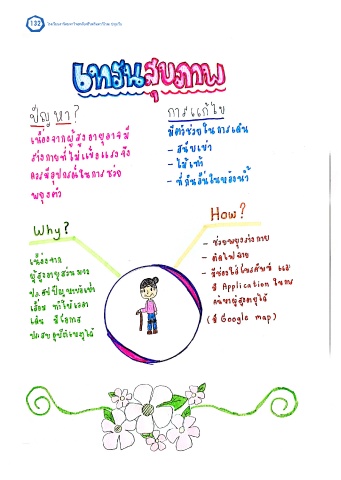 132
เทรนสุขภาพ
ปัญหา?
เนื่องจากผู้สูงอายุอาจมี
ร่างกายที่ไม่แข็งแรง จึง
ควรมีอุปกรณ์ในการช่วย
พยุงตัว
การแก้ไข
มีตัวช่วยในการเดิน
- สนับเข่า
- ไม้เท้า
- ที่กันลื่นในห้องน้ำ
Why?
เนื่องจาก
ผู้สูงอายุส่วนมาก
ประสบปัญหาข้อเข่า
เสื่อม ทำให้เวลา
เดิน มีโอกาส
ประสบอุบัติเหตุได้
How?
- ช่วยพยุงร่างกาย
- ติดไฟฉาย
- มีช่องใส่โทรศัพท์ และ
มี Application ในการ
นำทางผู้สูงอายุได้
(มี Google map)